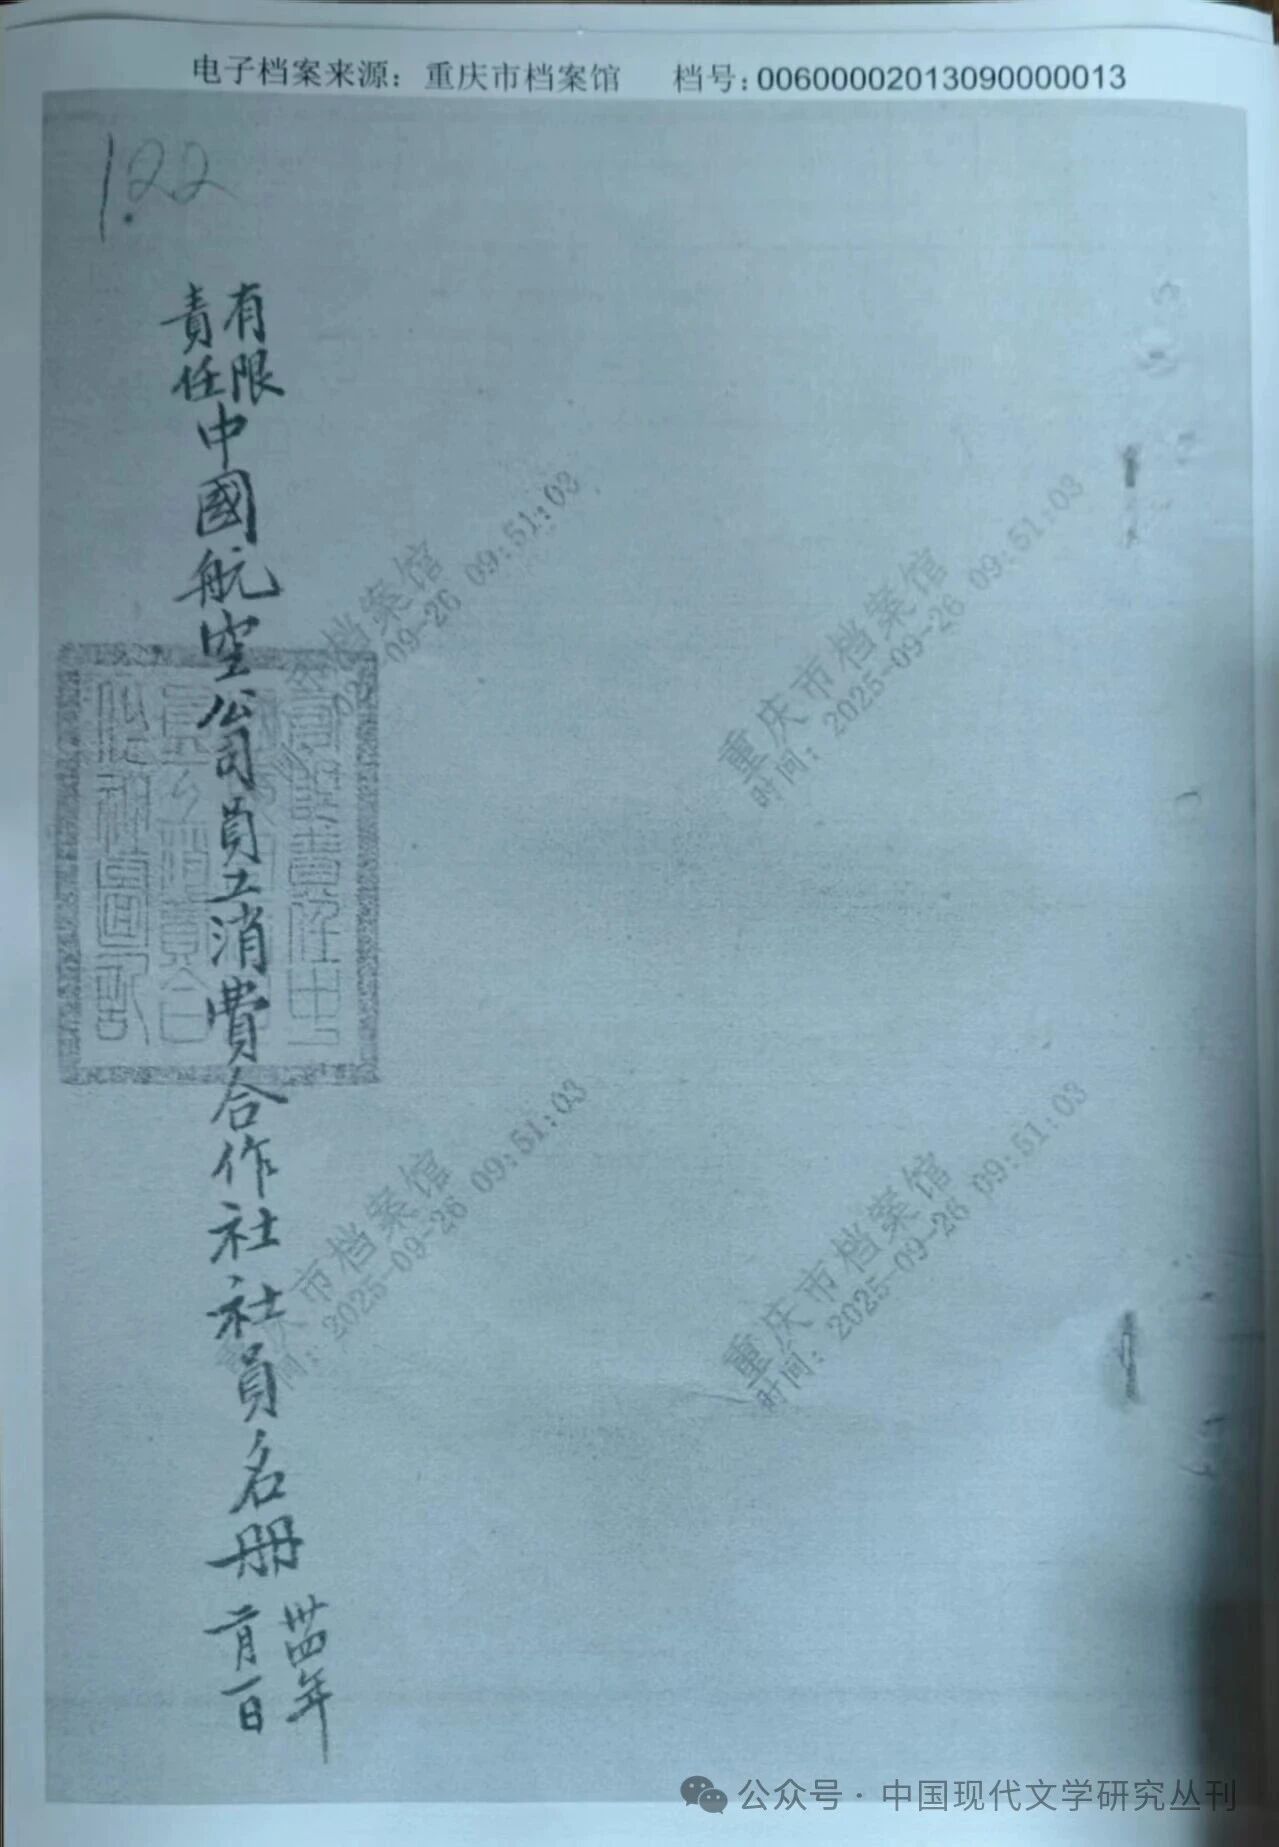 电子档案来源：重庆市档案� 档号：00600002013090000013
1.22
有限
責任
中國航空公司員工消費合作社社員名册
卅四年
二月一日
重庆市档案馆
时间：2025-09-26 09:51:03
重庆市档案馆
时间：2025-09-26 09:51:03
市档案馆
2025-09-26 09:51:03
档案馆
09-26 09:51:03
公众号·中国现代文学研究丛刊